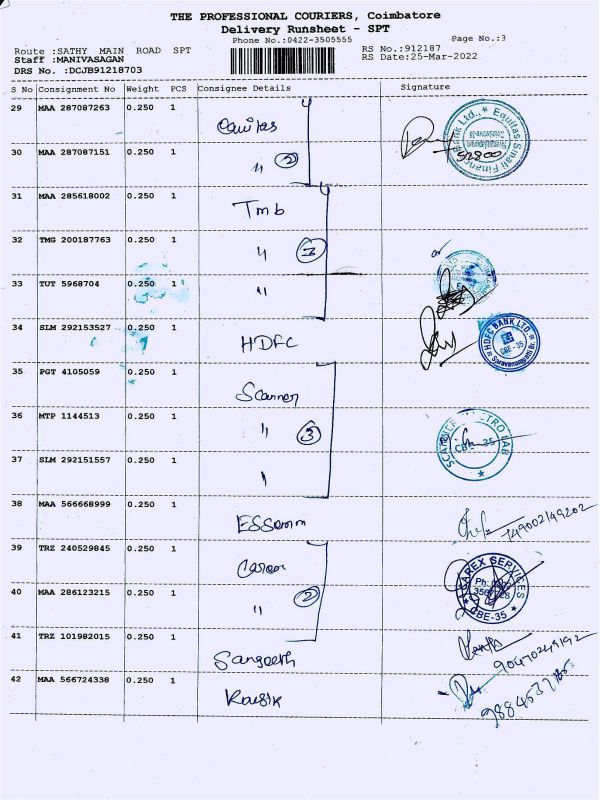 THE PROFESSIONAL COURIERS, Coimbatore
Delivery Runsheet - SPT
Phone No.:0422-3505555 Page No.:3
Route :SATHY MAIN ROAD SPT RS No.:912187
Staff :MANIVASAGAN RS Date:25-Mar-2022
DRS No. :DCJB91218703
S No Consignment No Weight PCS Consignee Details Signature
29 MAA 287087263 0.250 1
30 MAA 287087151 0.250 1 " 2
31 MAA 285618002 0.250 1 Tmb
32 TMG 200187763 0.250 1 " 3
33 TUT 5968704 0.250 1 "
34 SLM 292153527 0.250 1 HDFC
HDFC BANK LTD. CBE-35
35 PGT 4105059 0.250 1 Scanner
36 MTP 1144513 0.250 1 " 3
CBE-35
37 SLM 292151557 0.250 1 "
38 MAA 566668999 0.250 1 ESSemm
39 TRZ 240529845 0.250 1
CAREX SERVICES CBE-35
40 MAA 286123215 0.250 1 " 2
41 TRZ 101982015 0.250 1 Sangeeth
42 MAA 566724338 0.250 1 Kousik